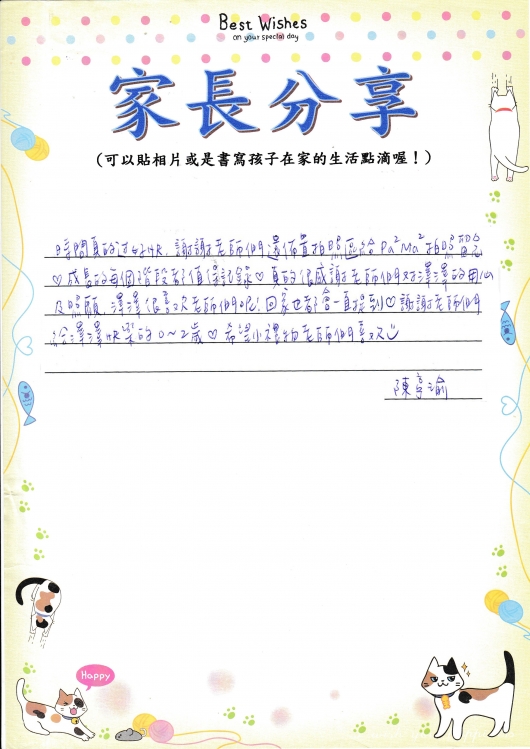 Best Wishes
on your special day
家長分享
(可以貼相片或是書寫孩子在家的生活點滴喔！)
時間真的過好快，謝謝老師們還佈置拍照區給Pa²Ma²拍照留念
♡成長的每個階段都值得記錄♡真的很感謝老師們對澤澤的用心
及照顧，澤澤很喜歡老師們呢!回家也都會一直提到♡謝謝老師們
給澤澤快樂的0～2歲♡希望小禮物老師們喜歡☺
陳亭渝
Happy